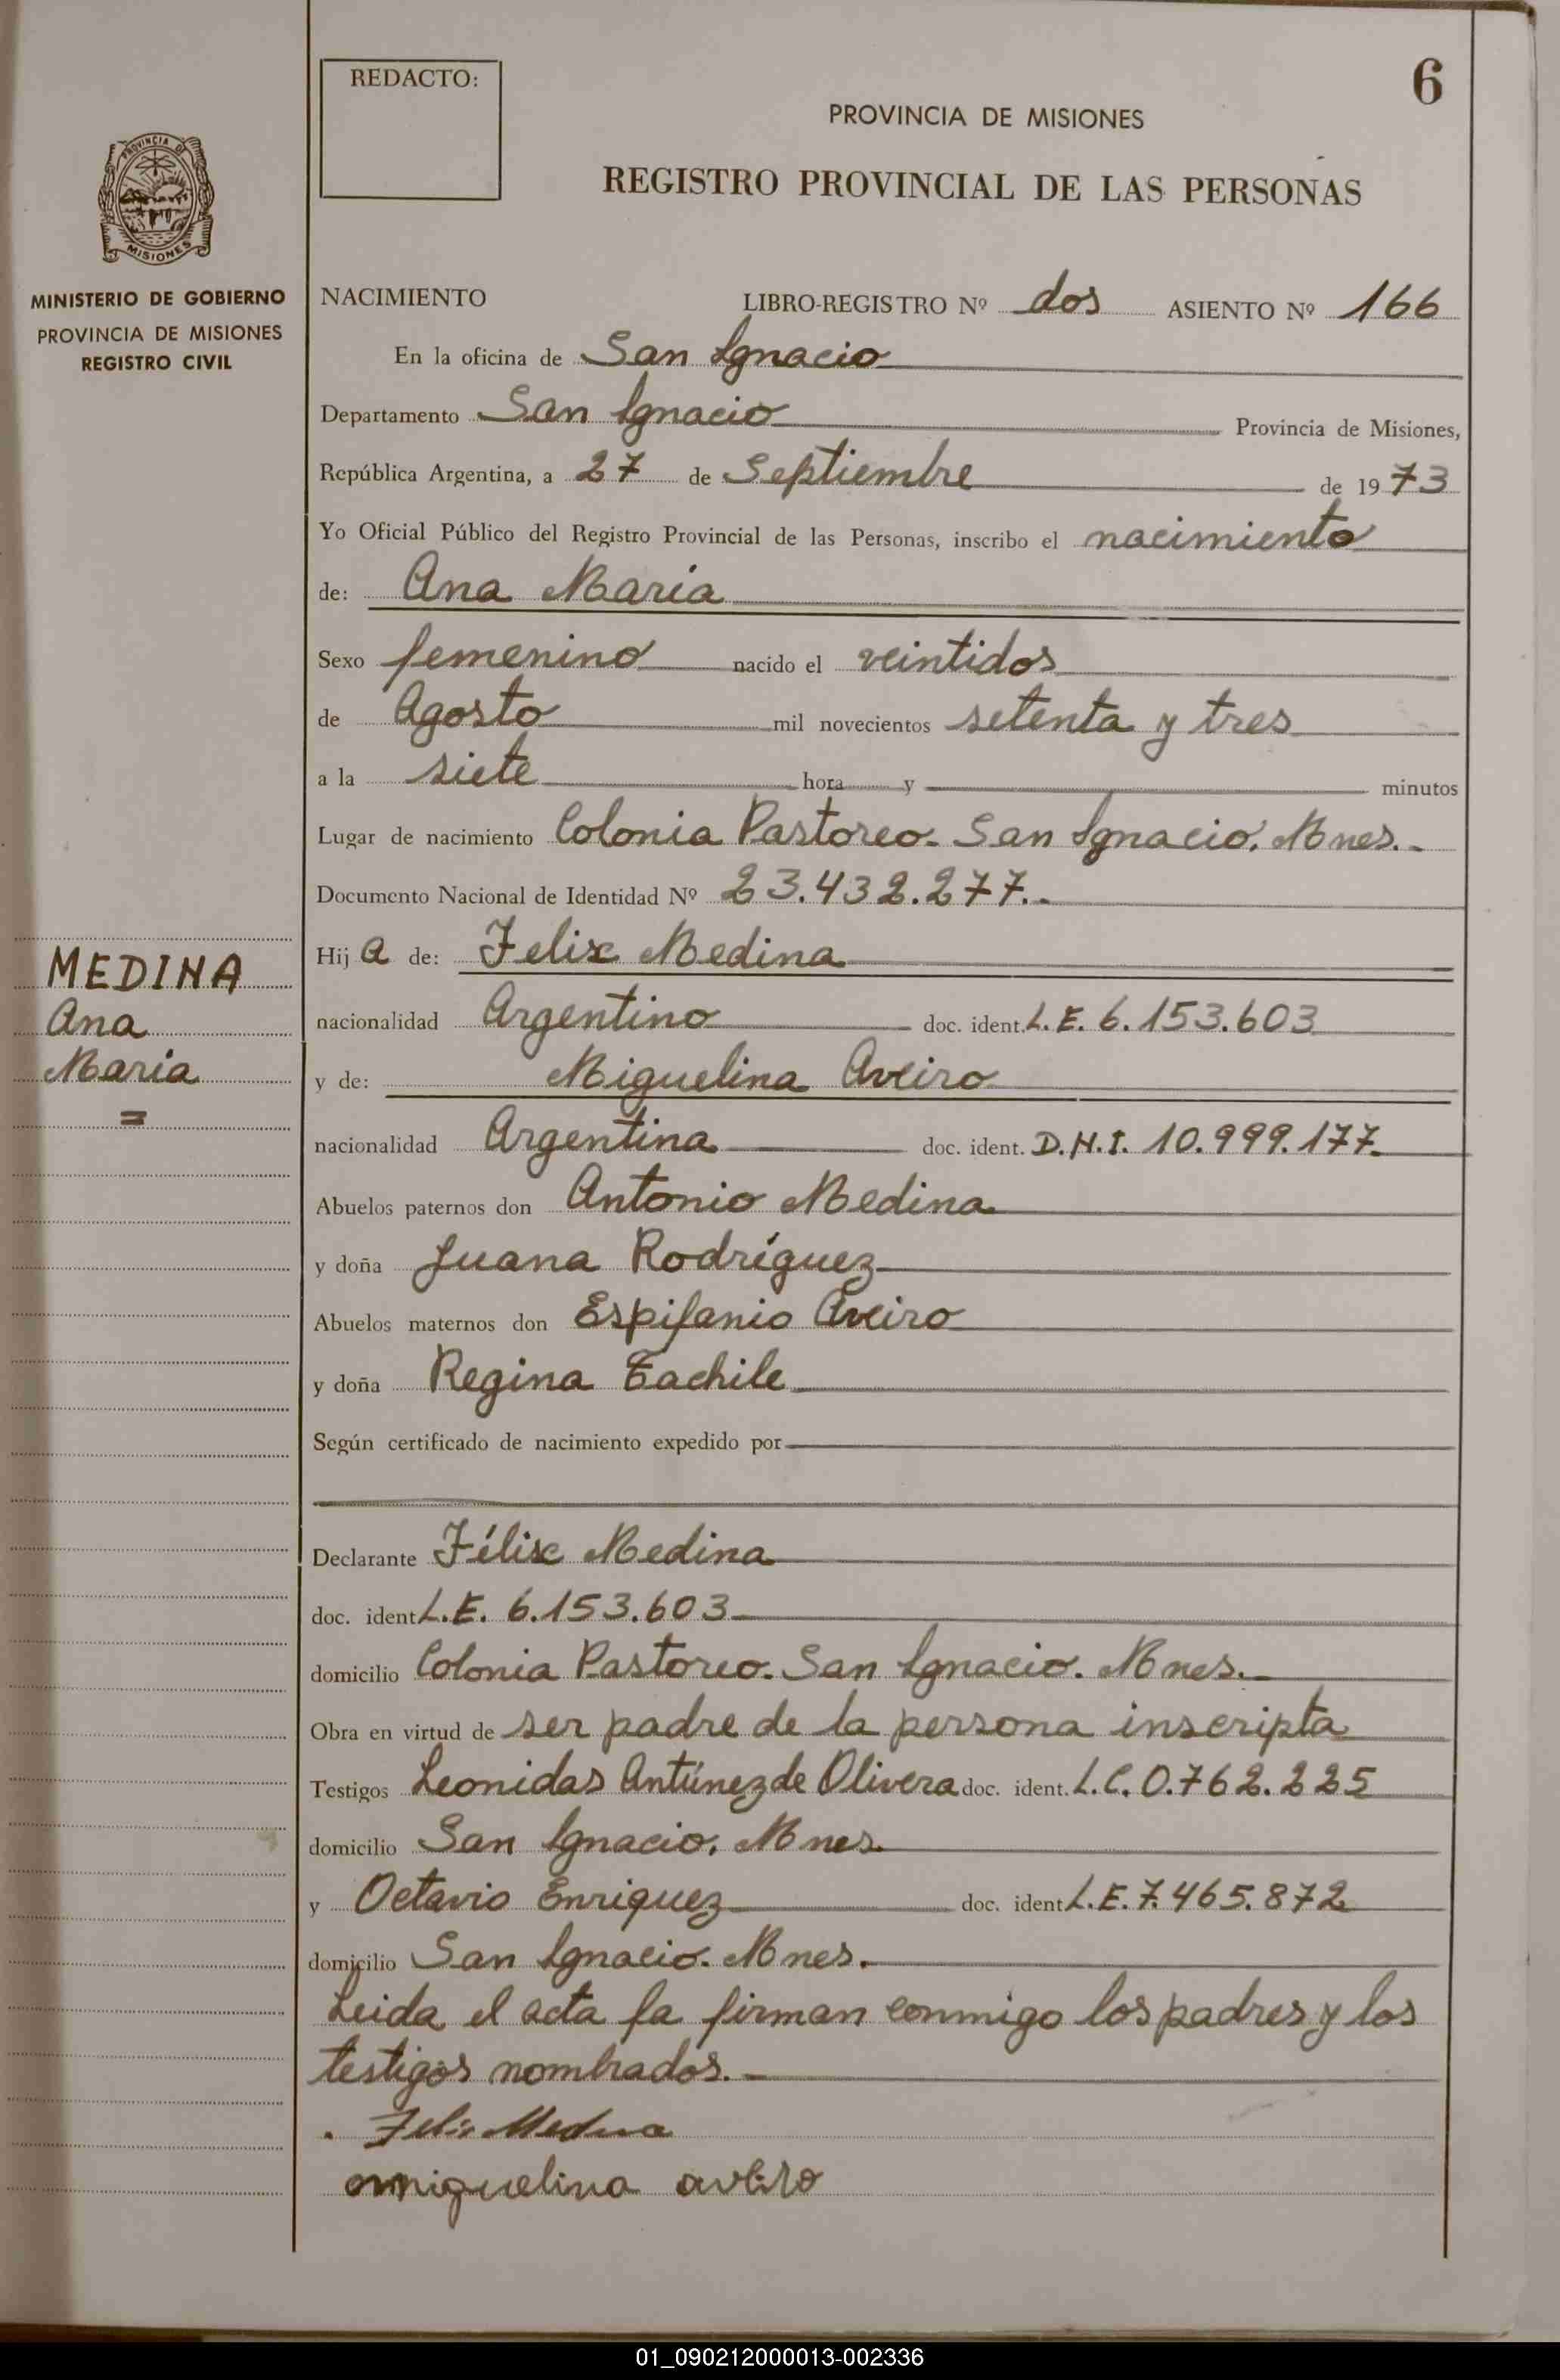 REDACTO:
6
PROVINCIA DE MISIONES
REGISTRO PROVINCIAL DE LAS PERSONAS
PROVINCIA DE
MISIONES
MINISTERIO DE GOBIERNO
PROVINCIA DE MISIONES
REGISTRO CIVIL
NACIMIENTO LIBRO-REGISTRO Nº dos ASIENTO Nº 166
En la oficina de San Ignacio
Departamento San Ignacio Provincia de Misiones,
República Argentina, a 27 de Septiembre de 1973
Yo Oficial Público del Registro Provincial de las Personas, inscribo el nacimiento
de: Ana María
Sexo femenino nacido el veintidos
de Agosto mil novecientos setenta y tres
a la siete hora y minutos
Lugar de nacimiento Colonia Pastoreo. San Ignacio. Mnes.-
Documento Nacional de Identidad Nº 23.432.277.-
MEDINA
Ana
María
=
Hij a de: Felix Medina
nacionalidad Argentino doc. ident. L.E. 6.153.603
y de: Miguelina Aveiro
nacionalidad Argentina doc. ident. D.N.I. 10.999.177.
Abuelos paternos don Antonio Medina
y doña Juana Rodríguez
Abuelos maternos don Espifanio Aveiro
y doña Regina Tachile
Según certificado de nacimiento expedido por
Declarante Félix Medina
doc. ident L.E. 6.153.603
domicilio Colonia Pastoreo. San Ignacio. Mnes.-
Obra en virtud de ser padre de la persona inscripta
Testigos Leonidas Antúnez de Olivera doc. ident. L.C. 0.762.225
domicilio San Ignacio. Mnes.
y Octavio Enriquez doc. ident L.E. 7.465.872
domicilio San Ignacio. Mnes.
Leida el acta la firman conmigo los padres y los
testigos nombrados.-
Felix Medina
miguelina aveiro
01_090212000013-002336